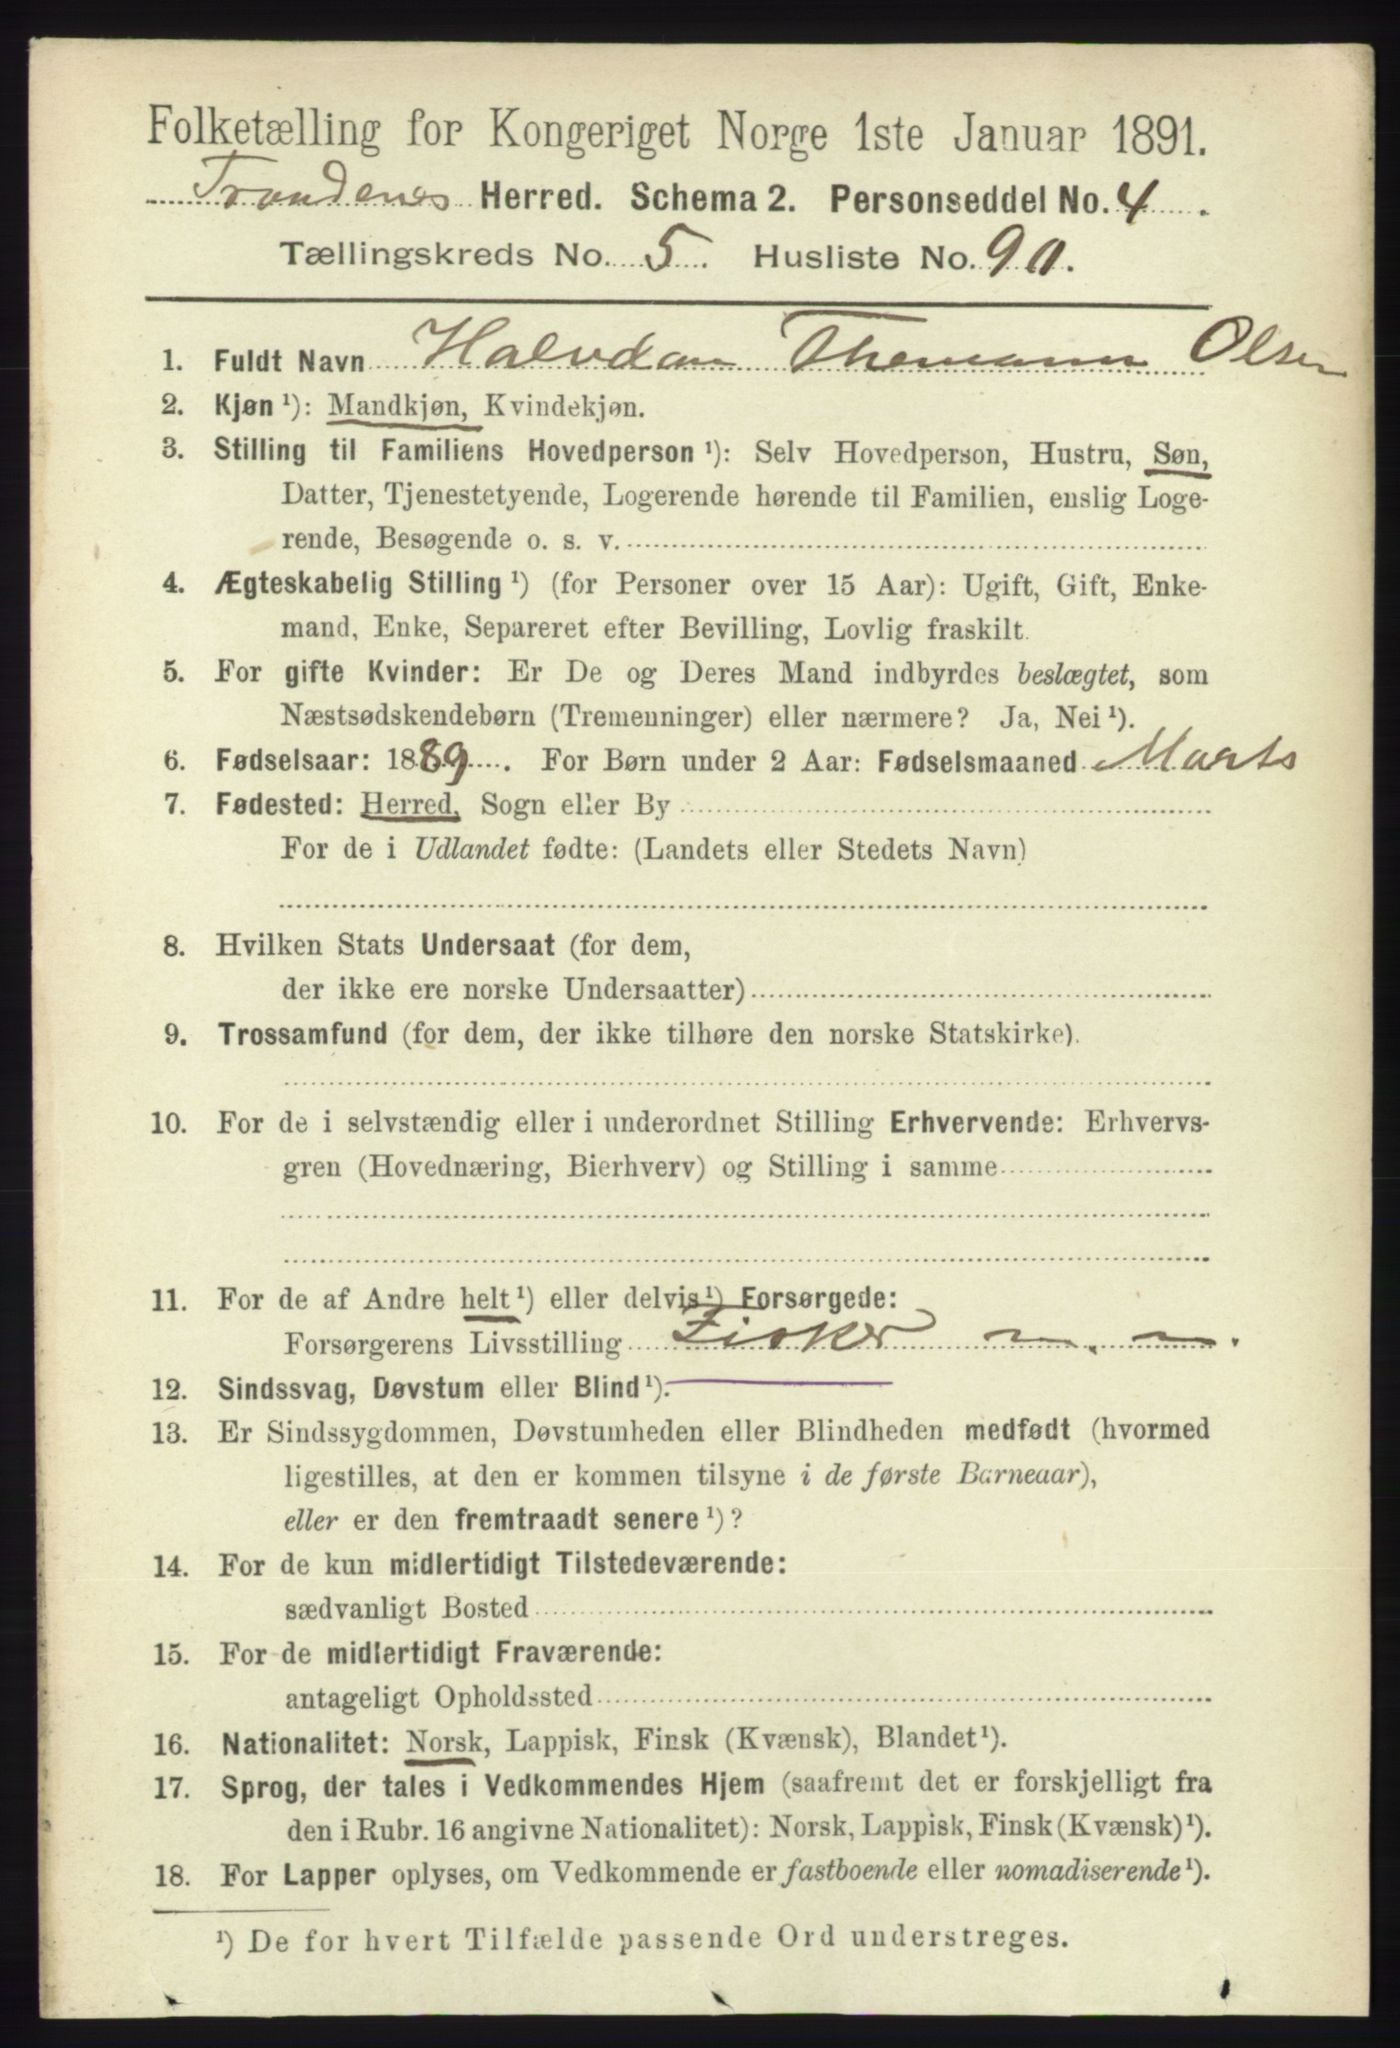 Folketælling for Kongeriget Norge 1ste Januar 1891.
Trondenes Herred. Schema 2. Personseddel No. 4.
Tællingskreds No. 5. Husliste No. 90.
1. Fuldt Navn Halvdan Themann Olsen
2. Kjøn ¹): Mandkjøn, Kvindekjøn.
3. Stilling til Familiens Hovedperson ¹): Selv Hovedperson, Hustru, Søn,
Datter, Tjenestetyende, Logerende hørende til Familien, enslig Loge-
rende, Besøgende o. s. v.
4. Ægteskabelig Stilling ¹) (for Personer over 15 Aar): Ugift, Gift, Enke-
mand, Enke, Separeret efter Bevilling, Lovlig fraskilt.
5. For gifte Kvinder: Er De og Deres Mand indbyrdes beslægtet, som
Næstsødskendebørn (Tremenninger) eller nærmere? Ja, Nei ¹).
6. Fødselsaar: 1889. For Børn under 2 Aar: Fødselsmaaned Marts
7. Fødested: Herred, Sogn eller By
For de i Udlandet fødte: (Landets eller Stedets Navn)
8. Hvilken Stats Undersaat (for dem,
der ikke ere norske Undersaatter)
9. Trossamfund (for dem, der ikke tilhøre den norske Statskirke).
10. For de i selvstændig eller i underordnet Stilling Erhvervende: Erhvervs-
gren (Hovednæring, Bierhverv) og Stilling i samme
11. For de af Andre helt ¹) eller delvis ¹) Forsørgede:
Forsørgerens Livsstilling Fisker
12. Sindssvag, Døvstum eller Blind ¹).
13. Er Sindssygdommen, Døvstumheden eller Blindheden medfødt (hvormed
ligestilles, at den er kommen tilsyne i de første Barneaar),
eller er den fremtraadt senere ¹)?
14. For de kun midlertidigt Tilstedeværende:
sædvanligt Bosted
15. For de midlertidigt Fraværende:
antageligt Opholdssted
16. Nationalitet: Norsk, Lappisk, Finsk (Kvænsk), Blandet ¹).
17. Sprog, der tales i Vedkommendes Hjem (saafremt det er forskjelligt fra
den i Rubr. 16 angivne Nationalitet): Norsk, Lappisk, Finsk (Kvænsk) ¹).
18. For Lapper oplyses, om Vedkommende er fastboende eller nomadiserende ¹).
¹) De for hvert Tilfælde passende Ord understreges.